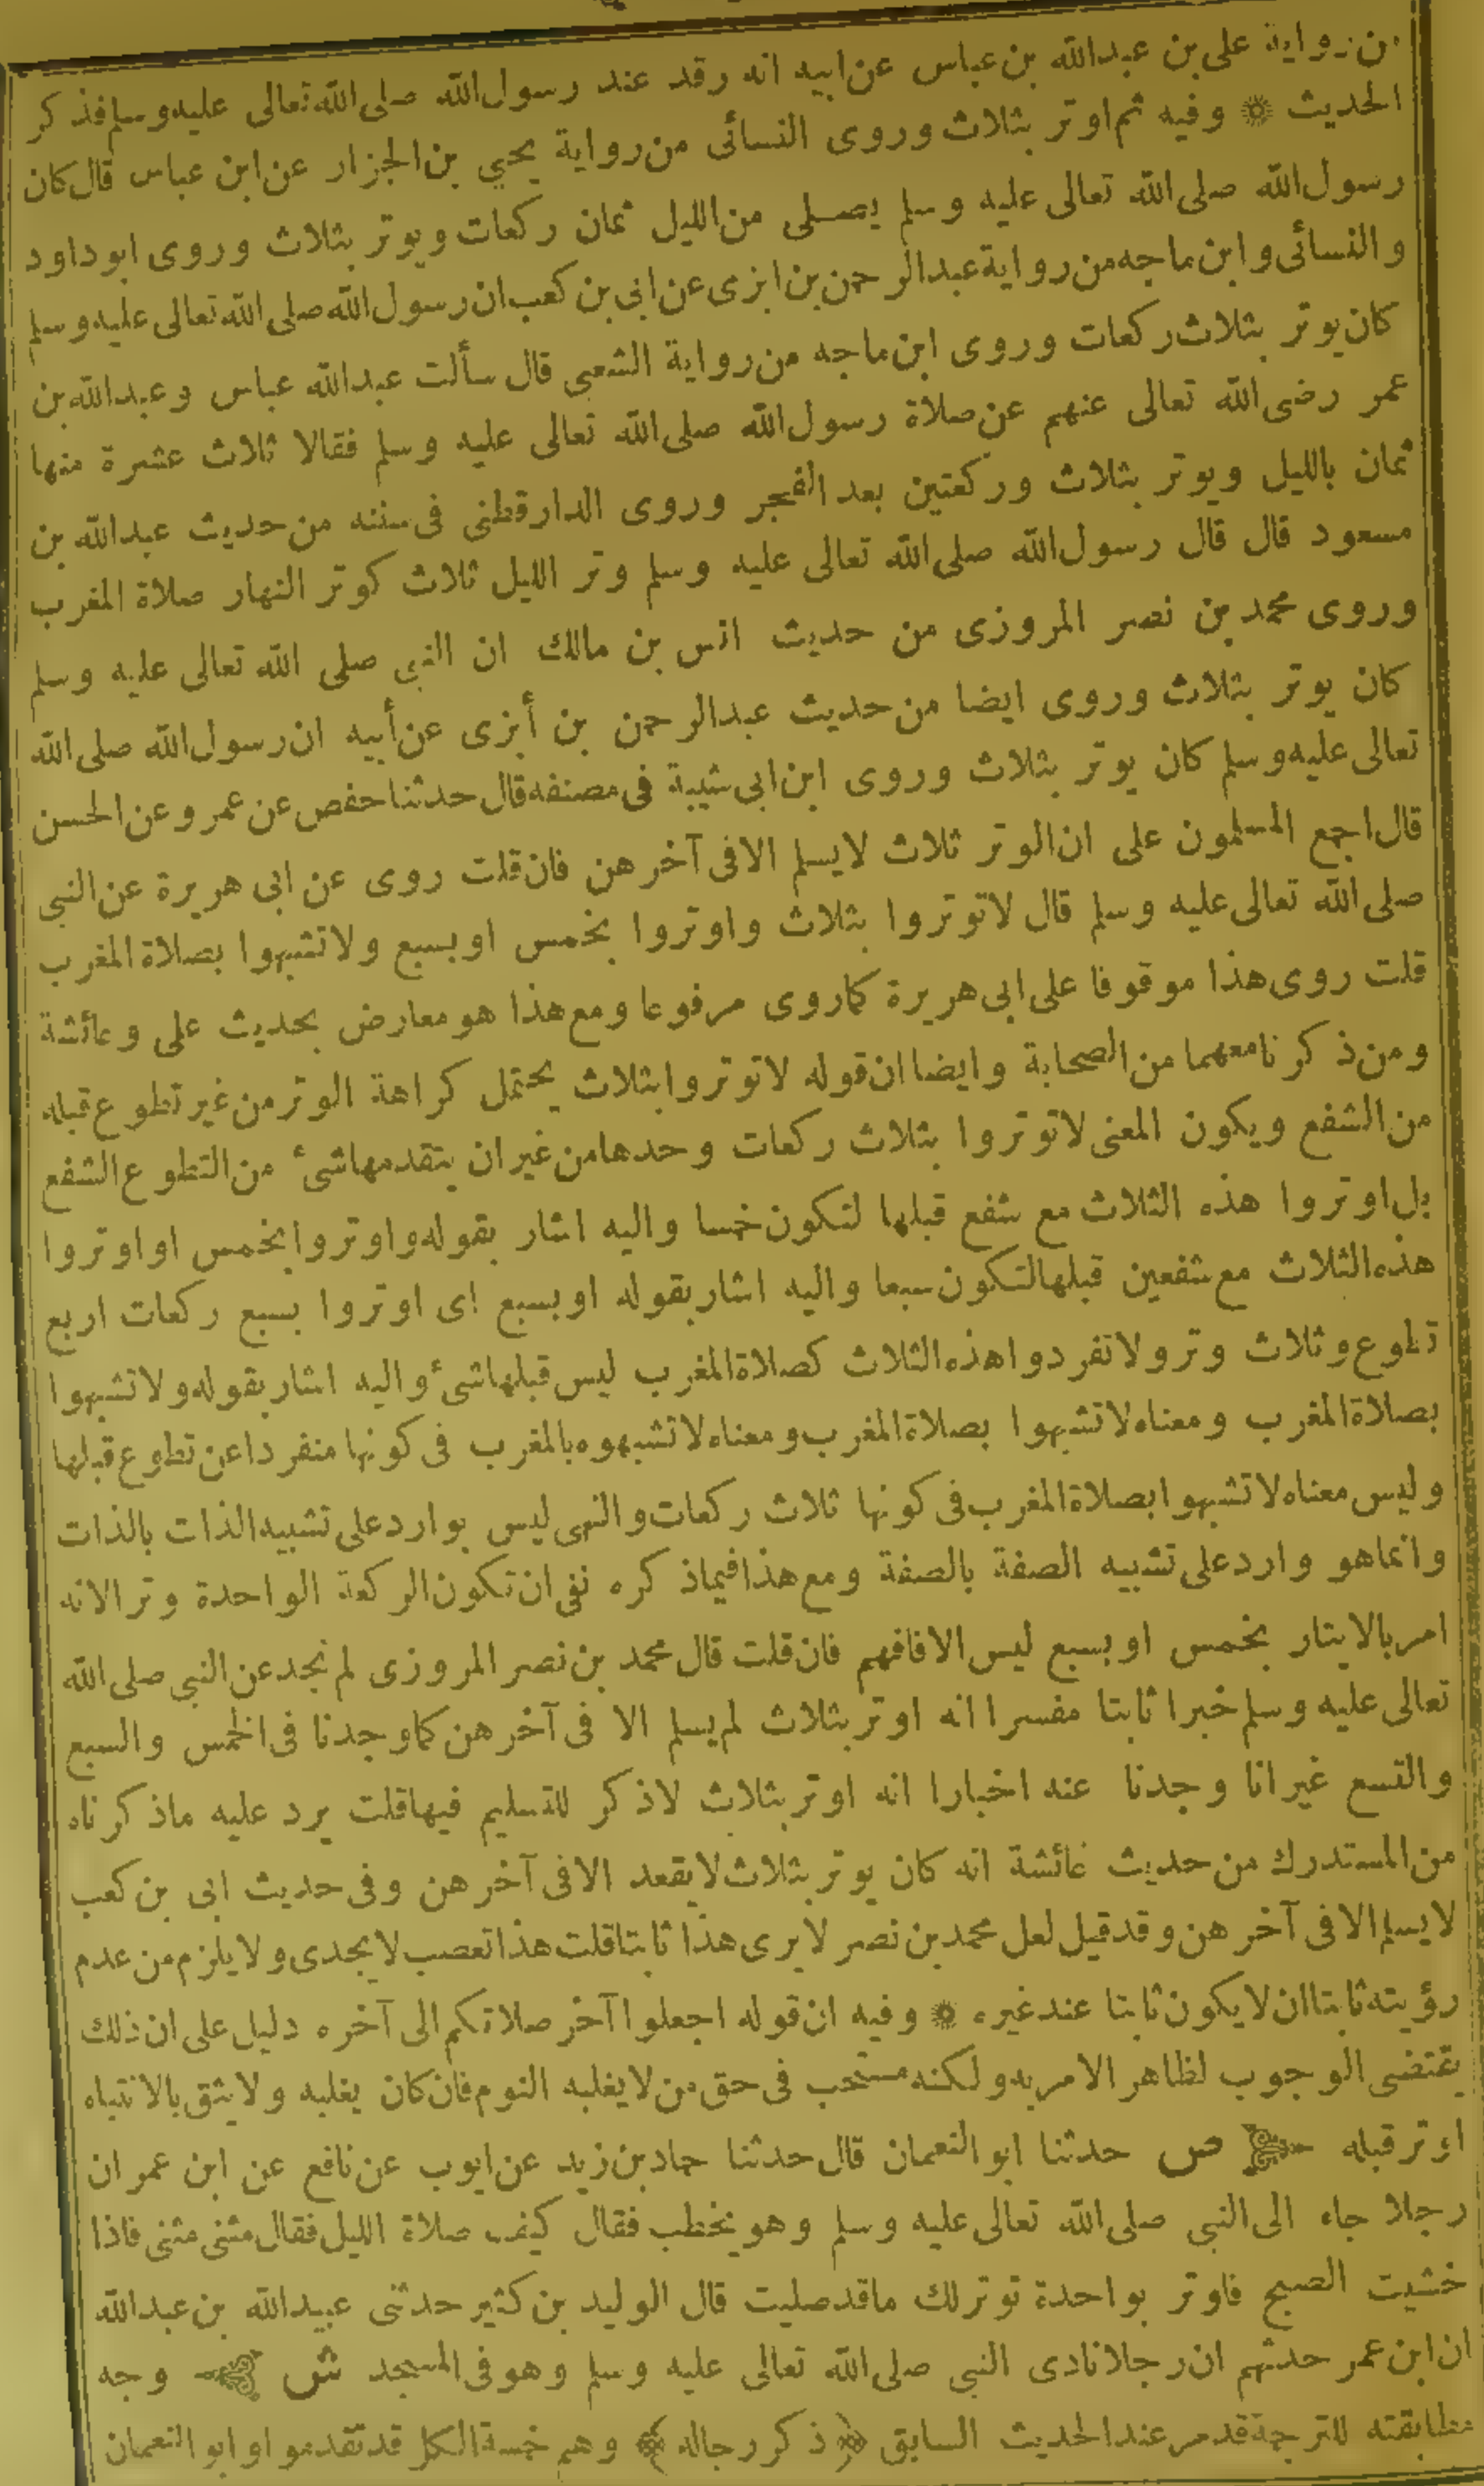 من رواية على بن عبدالله بن عباس عن ابيه انه رقد عند رسول الله صلى الله تعالى عليه وسلم فذكر
الحديث ۞ وفيه ثم اوتر بثلاث وروى النسائى من رواية يحيي بن الجزار عن ابن عباس قال كان
رسول الله صلى الله تعالى عليه وسلم يصلى من الليل ثمان ركعات ويوتر بثلاث وروى ابوداود
والنسائى وابن ماجه من رواية عبدالرحمن بن ابزى عن ابى بن كعب ان رسول الله صلى الله تعالى عليه وسلم
كان يوتر بثلاث ركعات وروى ابن ماجه من رواية الشعبى قال سألت عبدالله عباس وعبدالله بن
عمر رضى الله تعالى عنهم عن صلاة رسول الله صلى الله تعالى عليه وسلم فقالا ثلاث عشرة منها
ثمان بالليل ويوتر بثلاث وركعتين بعد الفجر وروى الدارقطنى فى سننه من حديث عبدالله بن
مسعود قال قال رسول الله صلى الله تعالى عليه وسلم وتر الليل ثلاث كوتر النهار صلاة المغرب
وروى محمد بن نصر المروزى من حديث انس بن مالك ان النبى صلى الله تعالى عليه وسلم
كان يوتر بثلاث وروى ايضا من حديث عبدالرحمن بن أبزى عن أبيه ان رسول الله صلى الله
تعالى عليه وسلم كان يوتر بثلاث وروى ابن ابى شيبة فى مصنفه قال حدثنا حفص عن عمرو عن الحسن
قال اجمع المسلمون على ان الوتر ثلاث لايسلم الافى آخرهن فان قلت روى عن ابى هريرة عن النبي
صلى الله تعالى عليه وسلم قال لاتوتروا بثلاث واوتروا بخمس اوبسبع ولاتشبهوا بصلاة المغرب
قلت روى هذا موقوفا على ابى هريرة كماروى مرفوعا ومع هذا هو معارض بحديث على وعائشة
ومن ذكرنا معهما من الصحابة وايضا ان قوله لاتوتروا بثلاث يحتمل كراهة الوتر من غير تطوع قبله
من الشفع ويكون المعنى لاتوتروا بثلاث ركعات وحدها من غير ان يتقدمها شئ من التطوع الشفع
بل اوتروا هذه الثلاث مع شفع قبلها لتكون خمسا واليه اشار بقوله واوتروا بخمس او اوتروا
هذه الثلاث مع شفعين قبلها لتكون سبعا واليه اشار بقوله اوبسبع اى اوتروا بسبع ركعات اربع
تطوع وثلاث وتر ولاتفردوا هذه الثلاث كصلاة المغرب ليس قبلها شئ واليه اشار بقوله ولاتشبهوا
بصلاة المغرب ومعناه لاتشبهوا بصلاة المغرب ومعناه لاتشبهوه بالمغرب فى كونها منفردا عن تطوع قبلها
وليس معناه لاتشبهوا بصلاة المغرب فى كونها ثلاث ركعات والنهى ليس بوارد على تشبيه الذات بالذات
وانماهو وارد على تشبيه الصفة بالصفة ومع هذا فيماذكره نفى ان تكون الركعة الواحدة وترالانه
امر بالايتار بخمس اوبسبع ليس الافافهم فان قلت قال محمد بن نصر المروزى لم نجد عن النبي صلى الله
تعالى عليه وسلم خبرا ثابتا مفسرا انه اوتر بثلاث لم يسلم الا فى آخرهن كماوجدنا فى الخمس والسبع
والتسع غير انا وجدنا عنه اخبارا انه اوتر بثلاث لاذكر للتسليم فيها قلت يرد عليه ماذكرناه
من المستدرك من حديث عائشة انه كان يوتر بثلاث لايقعد الافى آخرهن وفى حديث ابى بن كعب
لايسلم الافى آخرهن وقدقيل لعل محمد بن نصر لايرى هذا ثابتا قلت هذا تعصب لايجدى ولايلزم من عدم
رؤيته ثابتا ان لايكون ثابتا عند غيره ۞ وفيه ان قوله اجعلوا آخر صلاتكم الى آخره دليل على ان ذلك
يقتضى الوجوب لظاهر الامر به ولكنه مستحب فى حق من لايغلبه النوم فان كان يغلبه ولايثق بالانتباه
اوتر قبله ص حدثنا ابوالنعمان قال حدثنا حماد بن زيد عن ايوب عن نافع عن ابن عمر ان
رجلا جاء الى النبي صلى الله تعالى عليه وسلم وهو يخطب فقال كيف صلاة الليل فقال مثنى مثنى فاذا
خشيت الصبح فاوتر بواحدة توترلك ماقدصليت قال الوليد بن كثير حدثنى عبيدالله بن عبدالله
ان ابن عمر حدثهم ان رجلا نادى النبي صلى الله تعالى عليه وسلم وهو فى المسجد ش وجه
مطابقته للترجمة قدمر عند الحديث السابق ﴿ ذكر رجاله ﴾ وهم خمسة الكل قد تقدموا وابوالنعمان